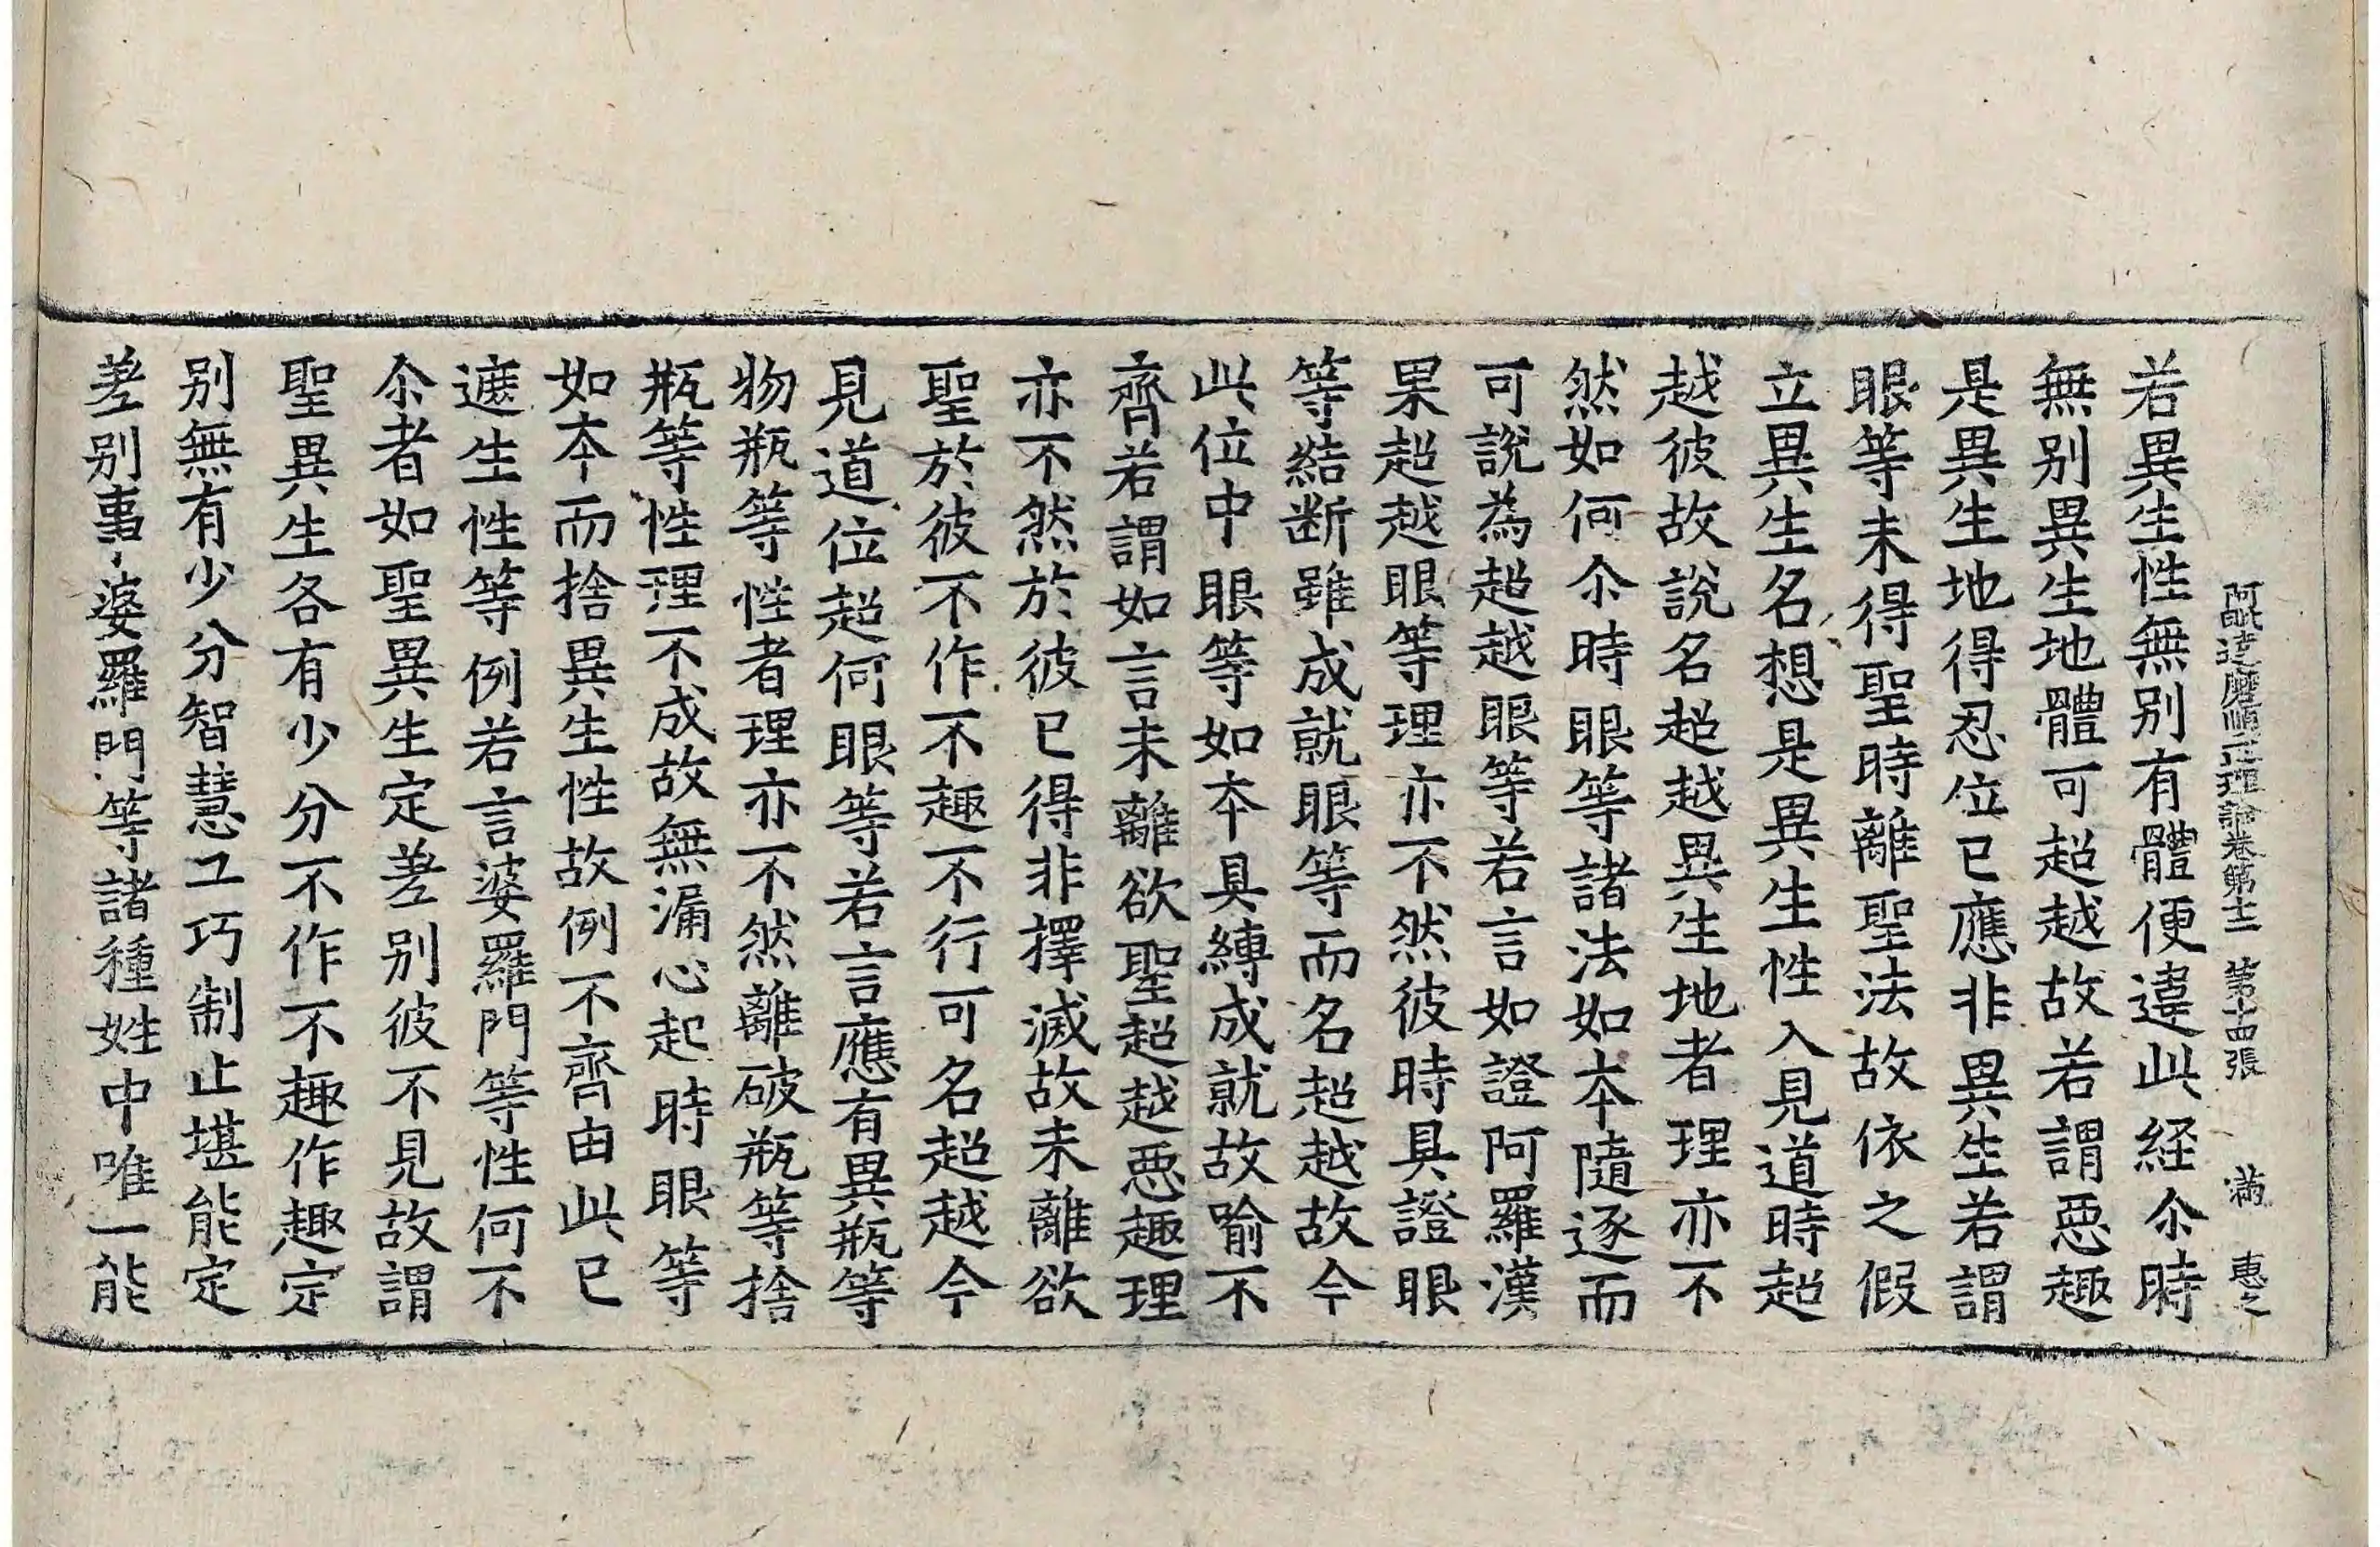 阿毗達磨順正理論卷第十二 第十四張 满 惠之
若異生性無别有體便違此経尒時
無别異生地體可超越故若謂惡趣
是異生地得忍位已應非異生若謂
眼等未得聖時離聖法故依之假
立異生名想是異生性入見道時超
越彼故説名超越異生地者理亦不
然如何尒時眼等諸法如本隨逐而
可説為超越眼等若言如證阿羅漢
果超越眼等理亦不然彼時具證眼
等結断雖成就眼等而名超越故今
此位中眼等如本具縛成就故喻不
齊若謂如言未離欲聖超越惡趣理
亦不然於彼已得非擇滅故未離欲
聖於彼不作不趣不行可名超越今
見道位超何眼等若言應有異瓶等
物瓶等性者理亦不然離破瓶等捨
瓶等性理不成故無漏心起時眼等
如本而捨異生性故例不齊由此已
遮生性等例若言婆羅門等性何不
尒者如聖異生定差别彼不見故謂
聖異生各有少分不作不趣作趣定
别無有少分智慧工巧制止堪能定
差别事婆羅門等諸種姓中唯一能